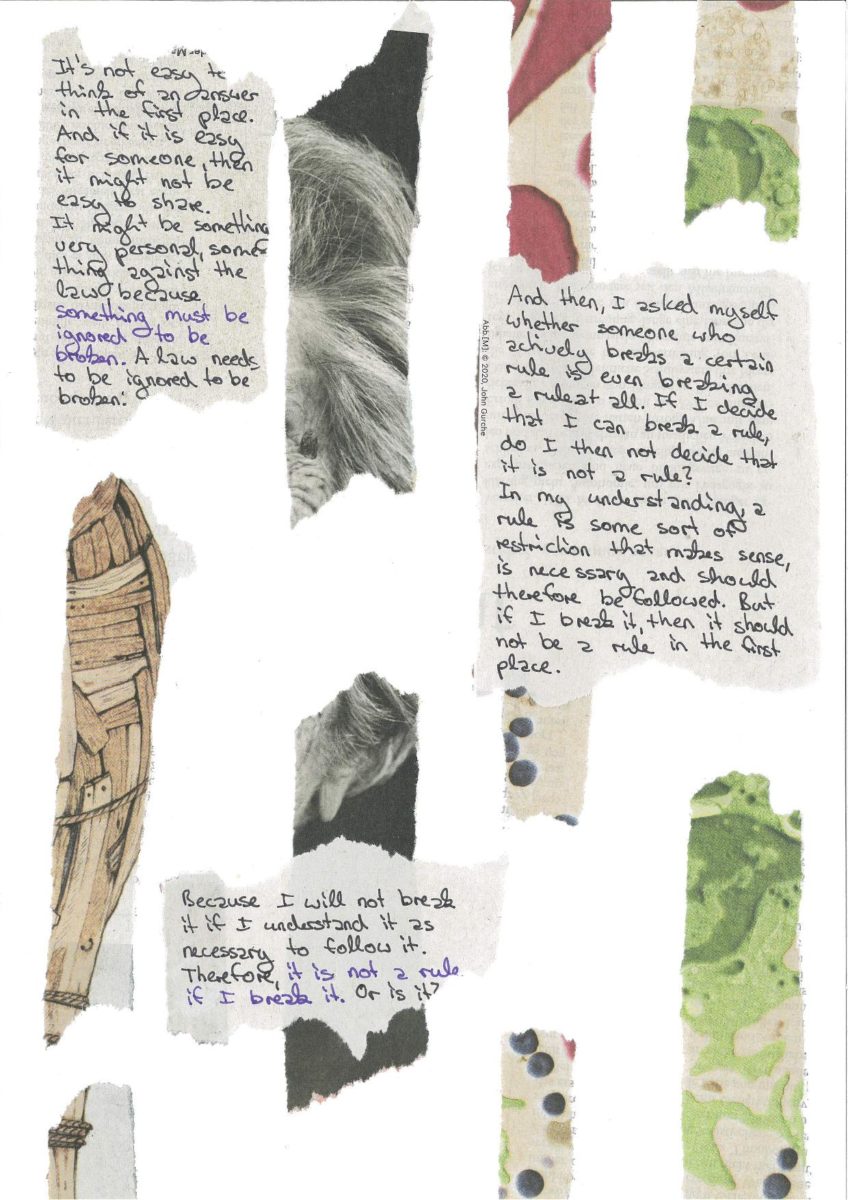 It's not easy to
think of an answer
in the first place.
And if it is easy
for someone, then
it might not be
easy to share.
It might be something
very personal, some-
thing against the
law because
something must be
ignored to be
broken. A law needs
to be ignored to be
broken.
And then, I asked myself
whether someone who
actively breaks a certain
rule is even breaking
a rule at all. If I decide
that I can break a rule,
do I then not decide that
it is not a rule?
In my understanding, a
rule is some sort of
restriction that makes sense,
is necessary and should
therefore be followed. But
if I break it, then it should
not be a rule in the first
place.
Abb.[M]: © 2020, John Gurche
Because I will not break
it if I understand it as
necessary to follow it.
Therefore, it is not a rule
if I break it. Or is it?